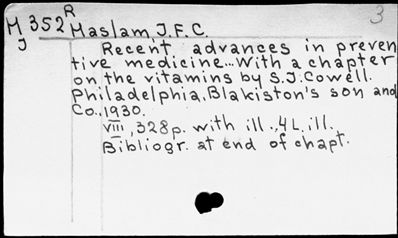 R
M 352 Maslam, J.F.C. 3
J
Recent advances in preven
tive medicine...With a chapter
on the vitamins by S.J.Cowell.
Philadelphia, Blakiston's son and
Co., 1930.
VIII, 328p. with ill., 4L. ill.
Bibliogr. at end of chapt.